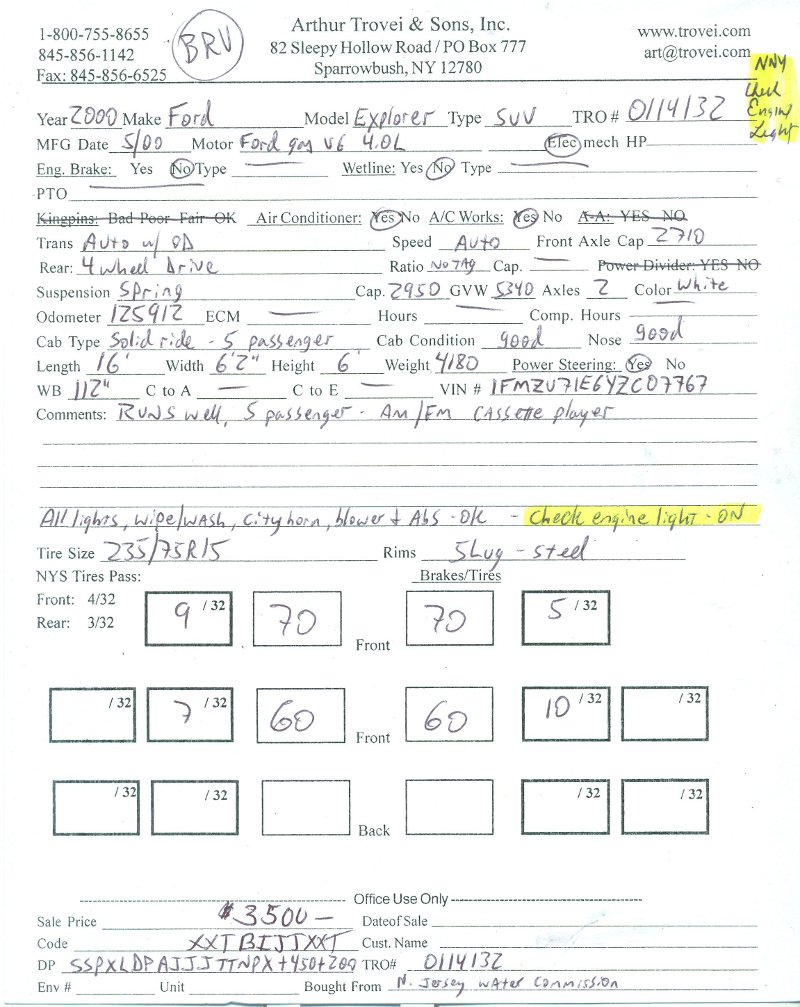 1-800-755-8655
845-856-1142
Fax: 845-856-6525
BRV
Arthur Trovei & Sons, Inc.
82 Sleepy Hollow Road / PO Box 777
Sparrowbush, NY 12780
www.trovei.com
art@trovei.com
NNY
Check
Engine
Light
Year 2000 Make Ford Model Explorer Type SUV TRO # 0114132
MFG Date 5/00 Motor Ford gas V6 4.0L Elec mech HP
Eng. Brake: Yes No Type Wetline: Yes No Type
PTO
Kingpins: Bad Poor Fair OK Air Conditioner: Yes No A/C Works: Yes No A-A: YES NO
Trans Auto w/ OD Speed Auto Front Axle Cap 2710
Rear: 4 wheel Drive Ratio No Tag Cap. Power Divider: YES NO
Suspension Spring Cap. 2950 GVW 5340 Axles 2 Color White
Odometer 125912 ECM Hours Comp. Hours
Cab Type Solid ride - 5 passenger Cab Condition good Nose good
Length 16' Width 6'2" Height 6' Weight 4180 Power Steering: Yes No
WB 112" C to A C to E VIN # 1FMZU71E6YZC07767
Comments: RUNS well, 5 passenger - Am/Fm Cassette player
All lights, wipe/wash, City horn, blower + Abs - OK - Check engine light - ON
Tire Size 235/75R15 Rims 5 Lug - steel
NYS Tires Pass: Brakes/Tires
Front: 4/32
Rear: 3/32
9 /32 70 Front 70 5 /32
/32 7 /32 60 Front 60 10 /32 /32
/32 /32 Back /32 /32
Office Use Only
Sale Price $3500- Date of Sale
Code XXTBIJTXXT Cust. Name
DP SSPXLDPAJJJTTNPX+450+200 TRO# 0114132
Env # Unit Bought From N. Jersey Water Commission